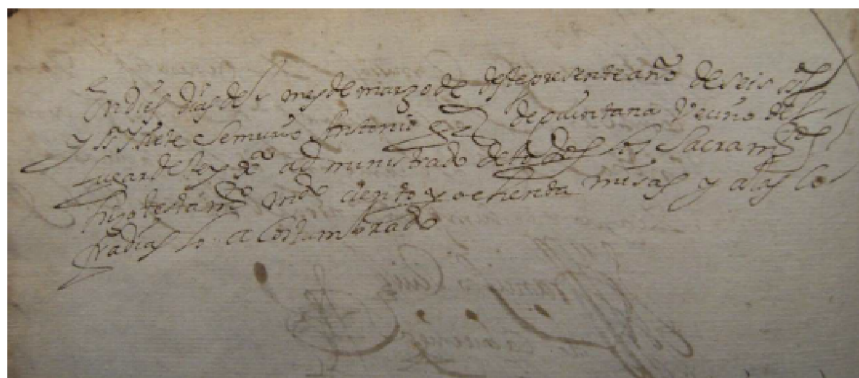 En dies dias del mes de março de deste presente año de seis sºs
y siete se murio Antonio de quintana veçino del
lugar de administrado de todos los Sacramºs
hiço testamº mdº ciento y ochenta misas y a las co
fradias lo acostumbrado